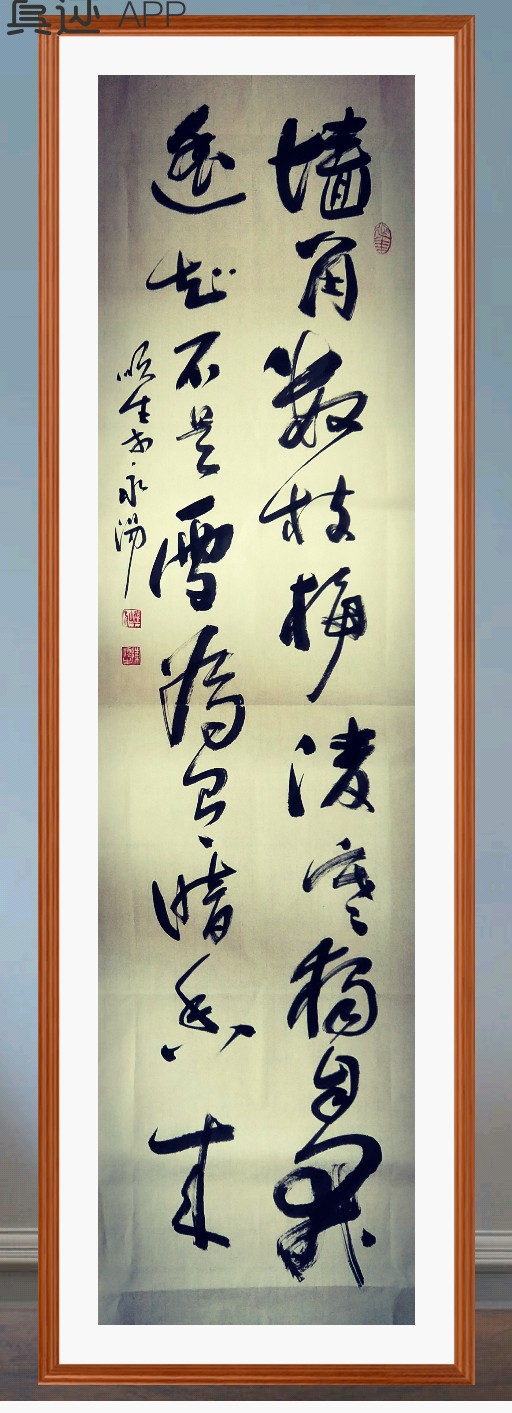 真迹 APP
墙角数枝梅凌寒独自開
遥知不是雪為有暗香来
顺生书永